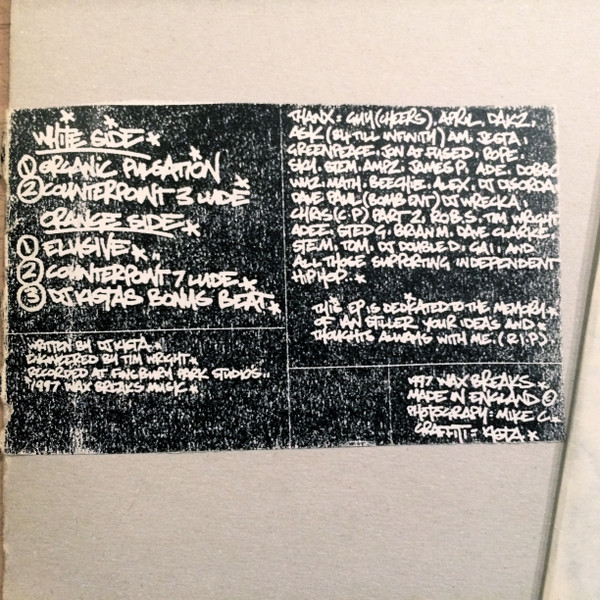 WHITE SIDE
① ORGANIC PULSATION
② COUNTERPOINT 3 LUDE
ORANGE SIDE
① ELUSIVE
② COUNTERPOINT 7 LUDE
③ DJ KISTAS BONUS BEAT
WRITTEN BY DJ KISTA
ENGINEERED BY TIM WRIGHT
RECORDED AT FINSBURY PARK STUDIOS..
1997 WAX BREAKS MUSIK
THANX = GUY (CHEERS), APRIL, DAKZ,
ASK (84 TILL INFINITY) AM, JESTA,
GREENPEACE, JON AT FUSED, ROPE,
SKY, STEM, AMPZ, JAMES P, ADE, DOBBO
WHZ, MATH, BEECHIE, ALEX, DJ DISORDA,
DAVE PAUL (BOMB ENT) DJ WRECKA,
CHRIS (C.P) PART 2, ROB.S, TIM WRIGHT
ADEE, STED G, BRAN M, DAVE CLARKE
STE.M, TOM, DJ DOUBLE D, GA1, AND
ALL THOSE SUPPORTING INDEPENDENT
HIPHOP..
THIS EP IS DEDICATED TO THE MEMORY
OF IAN STILLER YOUR IDEAS AND
THOUGHTS ALWAYS WITH ME. (R.I.P)
1997 WAX BREAKS
MADE IN ENGLAND
PHOTOGRAPY: MIKE C
GRAFFITI = KISTA